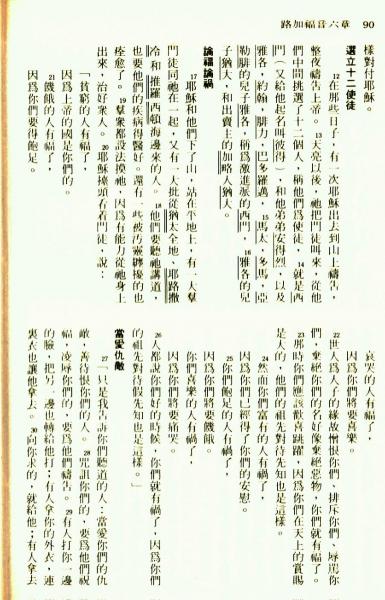 路加福音六章 90
樣對付耶穌。
選立十二使徒
12 在那些日子，有一次耶穌出去到山上禱告，
整夜禱告上帝。 13 天亮以後，祂把門徒叫來，從他
們中間挑選了十二個人，稱他們爲使徒， 14 就是西
門（又給他起名叫彼得），和他弟弟安得烈，以及
雅各，約翰，腓力，巴多羅邁， 15 馬太，多馬，亞
勒腓的兒子雅各，稱爲激進派的西門， 16 雅各的兒
子猶大，和出賣主的加略人猶大。
論福論禍
17 耶穌和他們下了山，站在平地上，有一大羣
門徒同祂在一起，又有一大批從猶太全地、耶路撒
冷和推羅西頓海邊來的人。 18 他們要聽祂講道，
也要他們的疾病得醫好。還有一些被污靈纏擾的也
痊愈了。 19 羣衆都設法摸祂，因爲有能力從祂身上
出來，治好衆人。 20 耶穌擡頭看着門徒，說：
「貧窮的人有福了，
因爲上帝的國是你們的。
21 饑餓的人有福了，
因爲你們要得飽足。
哀哭的人有福了，
因爲你們將要喜樂。
22 世人爲人子的緣故憎恨你們，排斥你們、辱罵你
們，棄絕你們的名好像棄絕惡物，你們就有福了。
23 那時你們應該歡喜跳躍，因爲你們在天上的賞賜
是大的，他們的祖先對待先知也是這樣。
24 然而你們富有的人有禍了，
因爲你們已經得了你們的安慰。
25 你們飽足的人有禍了，
因爲你們將要饑餓。
你們喜樂的人有禍了，
因爲你們將要痛哭。
26 人都說你們好的時候，你們就有禍了，因爲你們
的祖先對待假先知也是這樣。」
當愛仇敵
27 「只是我告訴你們聽道的人：當愛你們的仇
敵，善待恨你們的人。 28 咒詛你們的，要爲他們祝
福，凌辱你們的，要爲他們禱告。 29 有人打你一邊
的臉，把另一邊也轉給他打；有人拿你的外衣，連
裏衣也讓他拿去。 30 向你求的，就給他；有人拿去